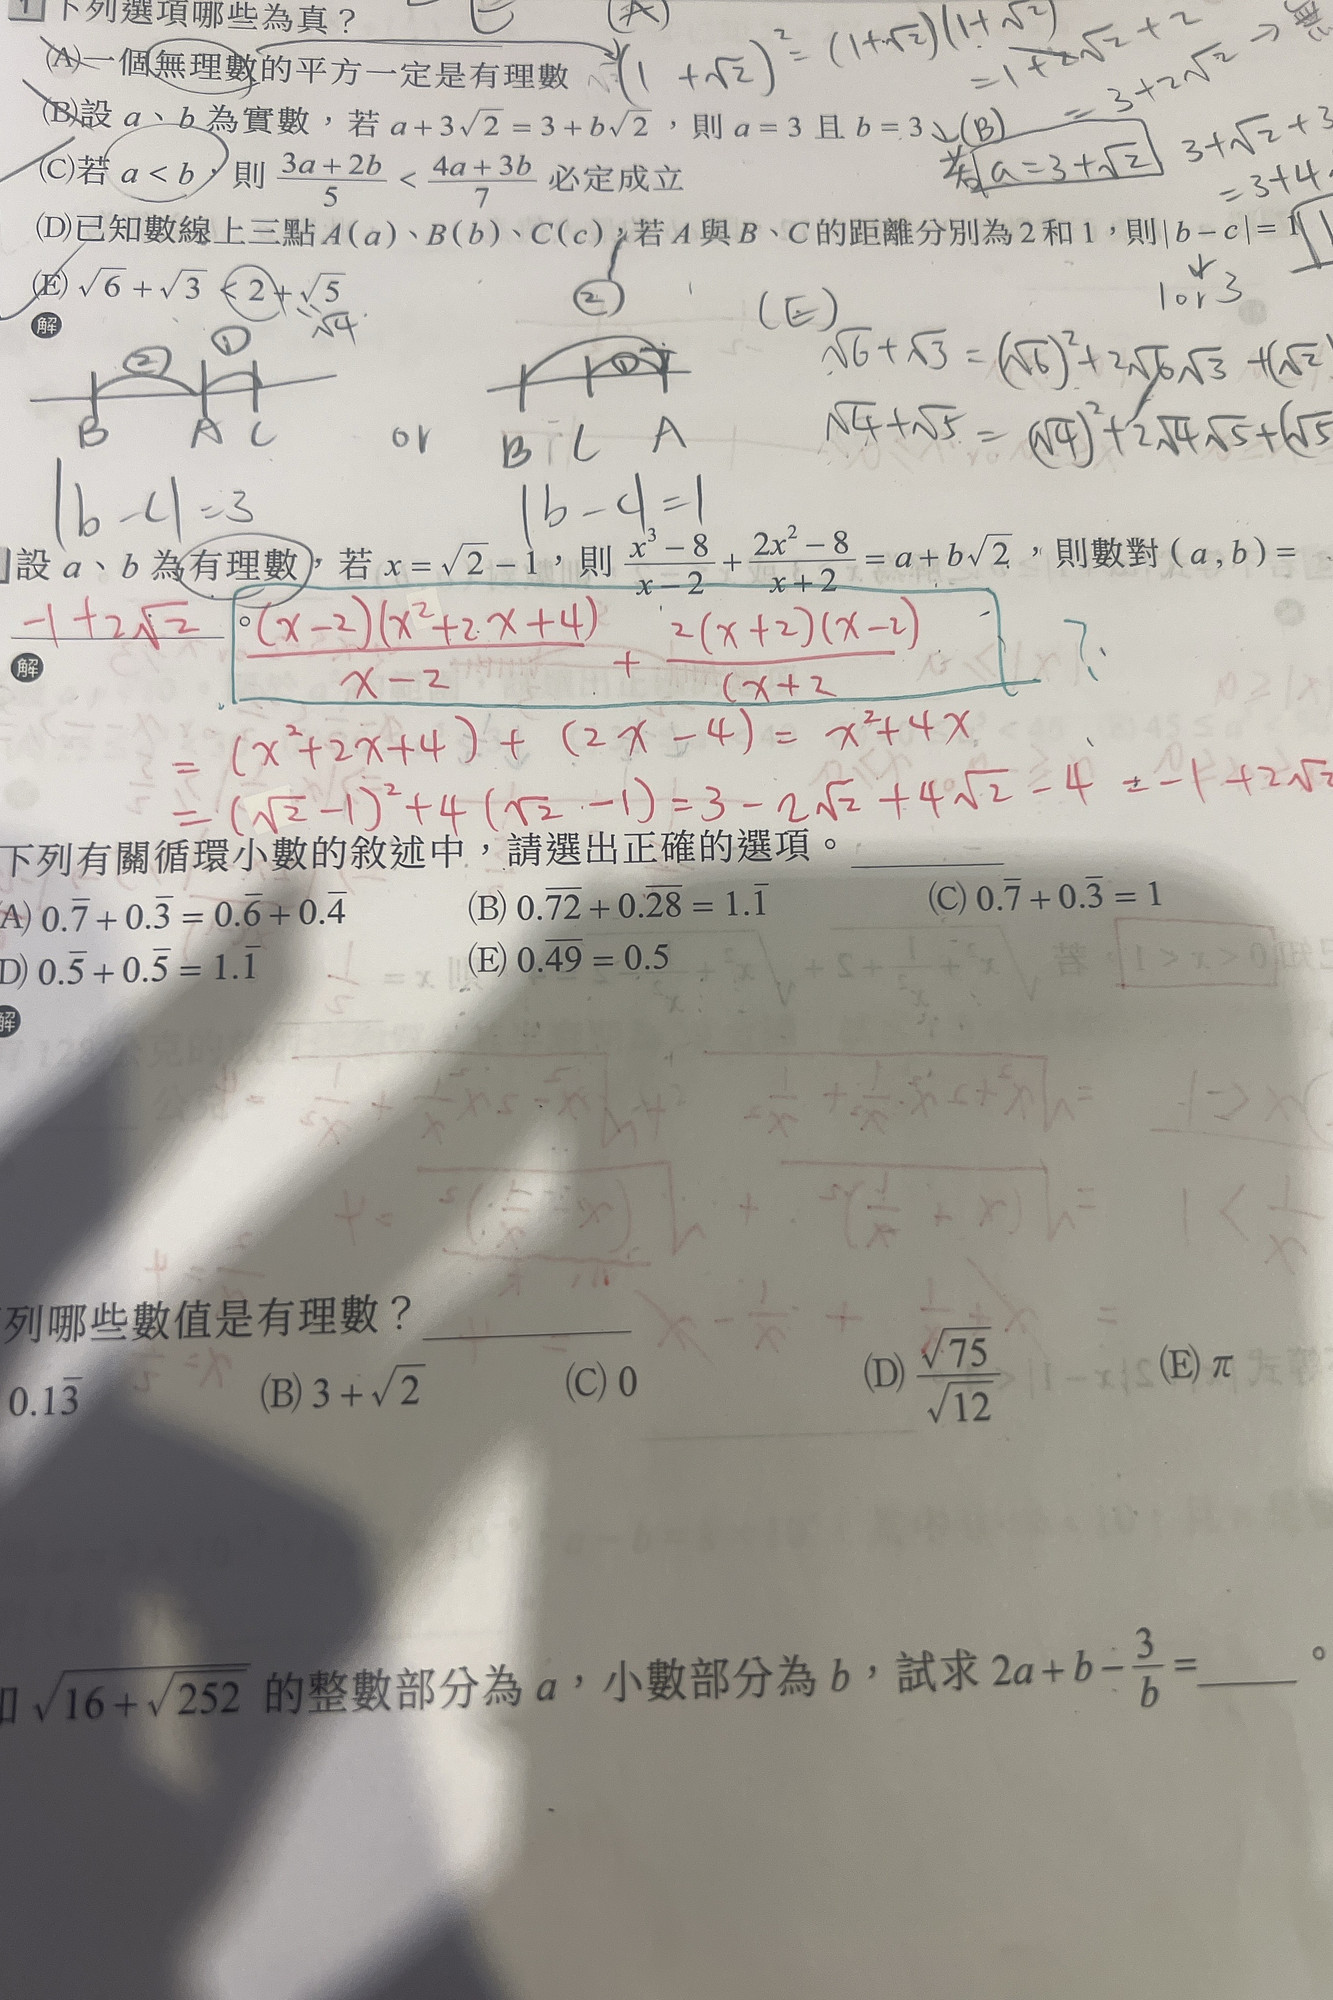 下列選項哪些為真？
(A)一個無理數的平方一定是有理數
(1+√2)² = (1+√2)(1+√2)
= 1+2√2+2
= 3+2√2 →
(B)設 a、b 為實數，若 a+3√2 = 3+b√2，則 a = 3 且 b = 3
(B)
若 a = 3+√2
(C)若 a < b，則 (3a+2b)/5 < (4a+3b)/7 必定成立
(D)已知數線上三點 A(a)、B(b)、C(c)，若 A 與 B、C 的距離分別為 2 和 1，則 |b − c| = 1
1 or 3
(E) √6 + √3 < 2 + √5
√4
解
② ①
B A C or B C A
② ①
|b−c| = 3 |b−c| = 1
(E)
√6+√3 = (√6)²+2√6√3+(√2
√4+√5 = (√4)²+2√4√5+(√5
設 a、b 為有理數，若 x = √2 − 1，則 (x³ − 8)/(x − 2) + (2x² − 8)/(x + 2) = a + b√2，則數對 (a, b) =
−1+2√2 。
解
(x−2)(x²+2x+4)/(x−2) + 2(x+2)(x−2)/(x+2 ?
= (x²+2x+4) + (2x−4) = x²+4x
= (√2−1)²+4(√2−1) = 3−2√2+4√2−4 = −1+2√2
下列有關循環小數的敘述中，請選出正確的選項。
A) 0.7̅ + 0.3̅ = 0.6̅ + 0.4̅ (B) 0.7̅2̅ + 0.2̅8̅ = 1.1̅ (C) 0.7̅ + 0.3̅ = 1
D) 0.5̅ + 0.5̅ = 1.1̅ (E) 0.4̅9̅ = 0.5
解
列哪些數值是有理數？
0.13̅ (B) 3 + √2 (C) 0 (D) √75/√12 (E) π
√(16+√252) 的整數部分為 a，小數部分為 b，試求 2a + b − 3/b = 。